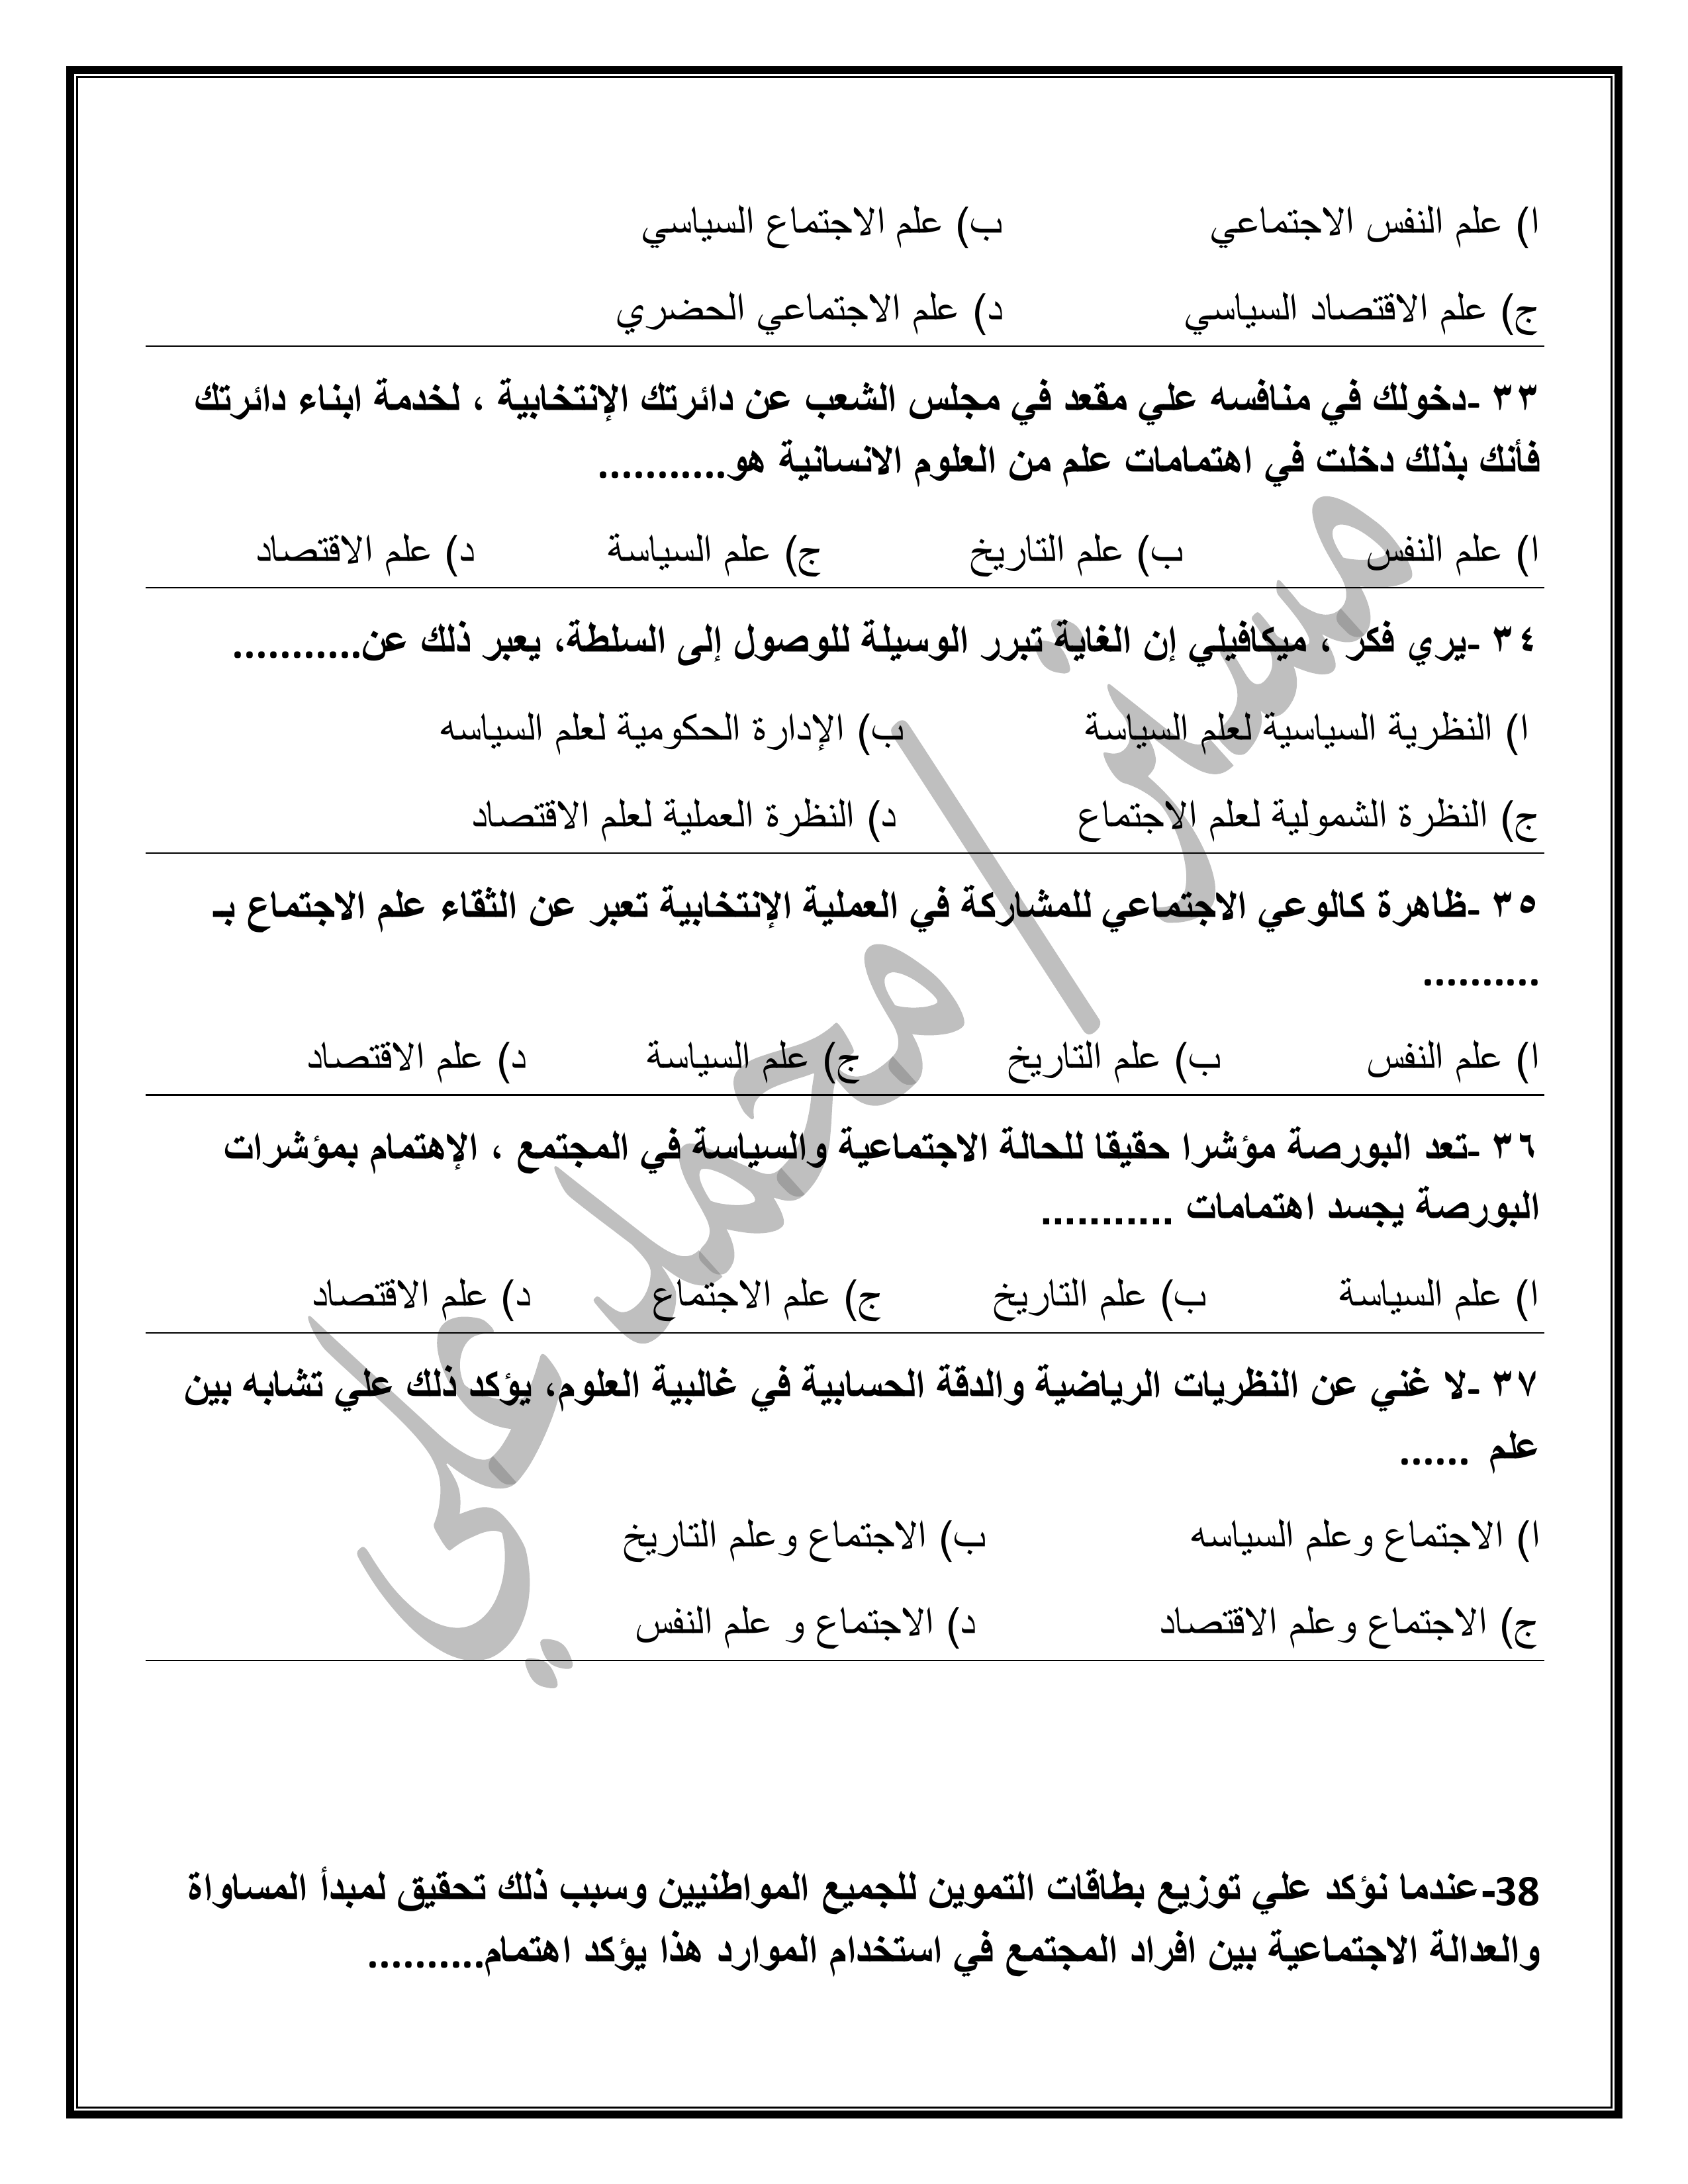 ا) علم النفس الاجتماعي ب) علم الاجتماع السياسي
ج) علم الاقتصاد السياسي د) علم الاجتماعي الحضري
٣٣ -دخولك في منافسه علي مقعد في مجلس الشعب عن دائرتك الإنتخابية ، لخدمة ابناء دائرتك
فأنك بذلك دخلت في اهتمامات علم من العلوم الانسانية هو...........
ا) علم النفس ب) علم التاريخ ج) علم السياسة د) علم الاقتصاد
٣٤ -يري فكر ، ميكافيلي إن الغاية تبرر الوسيلة للوصول إلى السلطة، يعبر ذلك عن...........
ا) النظرية السياسية لعلم السياسة ب) الإدارة الحكومية لعلم السياسه
ج) النظرة الشمولية لعلم الاجتماع د) النظرة العملية لعلم الاقتصاد
٣٥ -ظاهرة كالوعي الاجتماعي للمشاركة في العملية الإنتخابية تعبر عن الثقاء علم الاجتماع بـ
..........
ا) علم النفس ب) علم التاريخ ج) علم السياسة د) علم الاقتصاد
٣٦ -تعد البورصة مؤشرا حقيقا للحالة الاجتماعية والسياسة في المجتمع ، الإهتمام بمؤشرات
البورصة يجسد اهتمامات ...........
ا) علم السياسة ب) علم التاريخ ج) علم الاجتماع د) علم الاقتصاد
٣٧ -لا غني عن النظريات الرياضية والدقة الحسابية في غالبية العلوم، يؤكد ذلك علي تشابه بين
علم ......
ا) الاجتماع وعلم السياسه ب) الاجتماع وعلم التاريخ
ج) الاجتماع وعلم الاقتصاد د) الاجتماع و علم النفس
38-عندما نؤكد علي توزيع بطاقات التموين للجميع المواطنيين وسبب ذلك تحقيق لمبدأ المساواة
والعدالة الاجتماعية بين افراد المجتمع في استخدام الموارد هذا يؤكد اهتمام..........
مستر/محمد علي